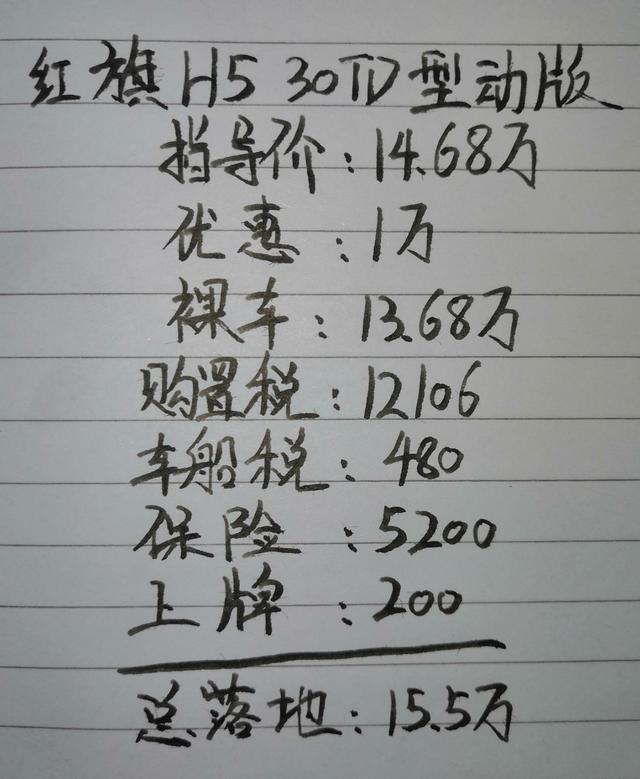 红旗H5 30TD型动版
指导价:14.68万
优惠:1万
裸车:13.68万
购置税:12106
车船税:480
保险:5200
上牌:200
总落地:15.5万